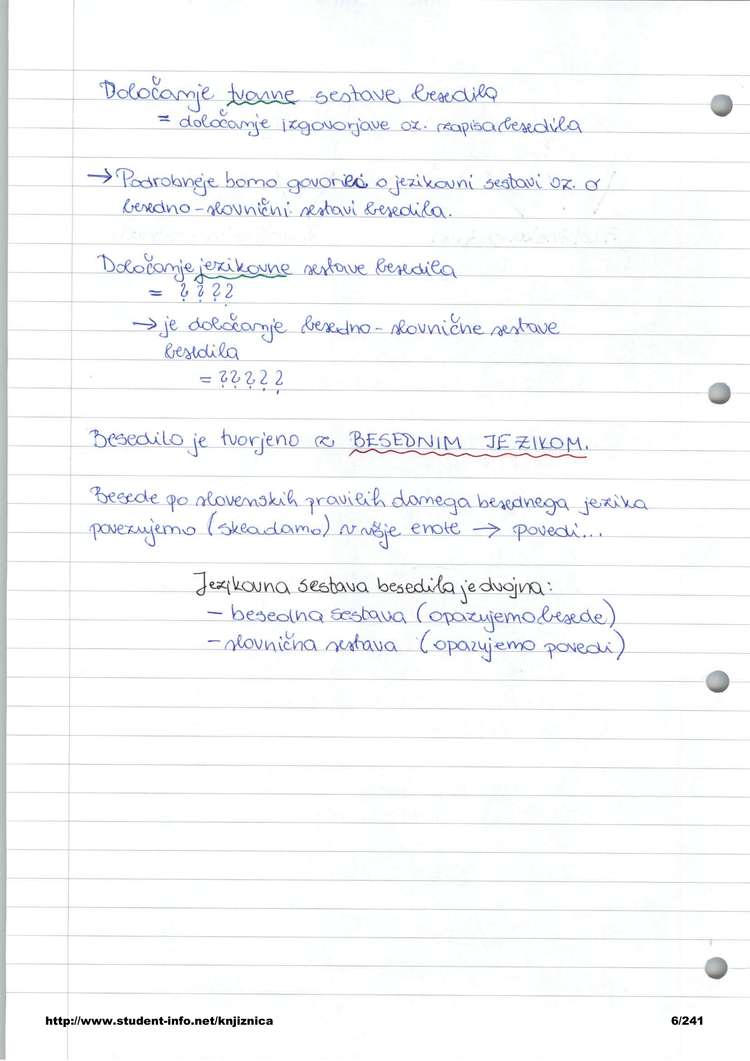 Določanje tvarne sestave besedila
= določanje izgovorjave oz. zapisa besedila
→ Podrobneje bomo govorili o jezikovni sestavi oz. o
besedno-slovnični sestavi besedila.
Določanje jezikovne sestave besedila
= ????
→ je določanje besedno-slovnične sestave
besedila
= ?????
Besedilo je tvorjeno z BESEDNIM JEZIKOM.
Besede po slovenskih pravilih danega besednega jezika
povezujemo (skladamo) v višje enote → povedi...
Jezikovna sestava besedila je dvojna:
- besedna sestava (opazujemo besede)
- slovnična sestava (opazujemo povedi)
http://www.student-info.net/knjiznica
6/241